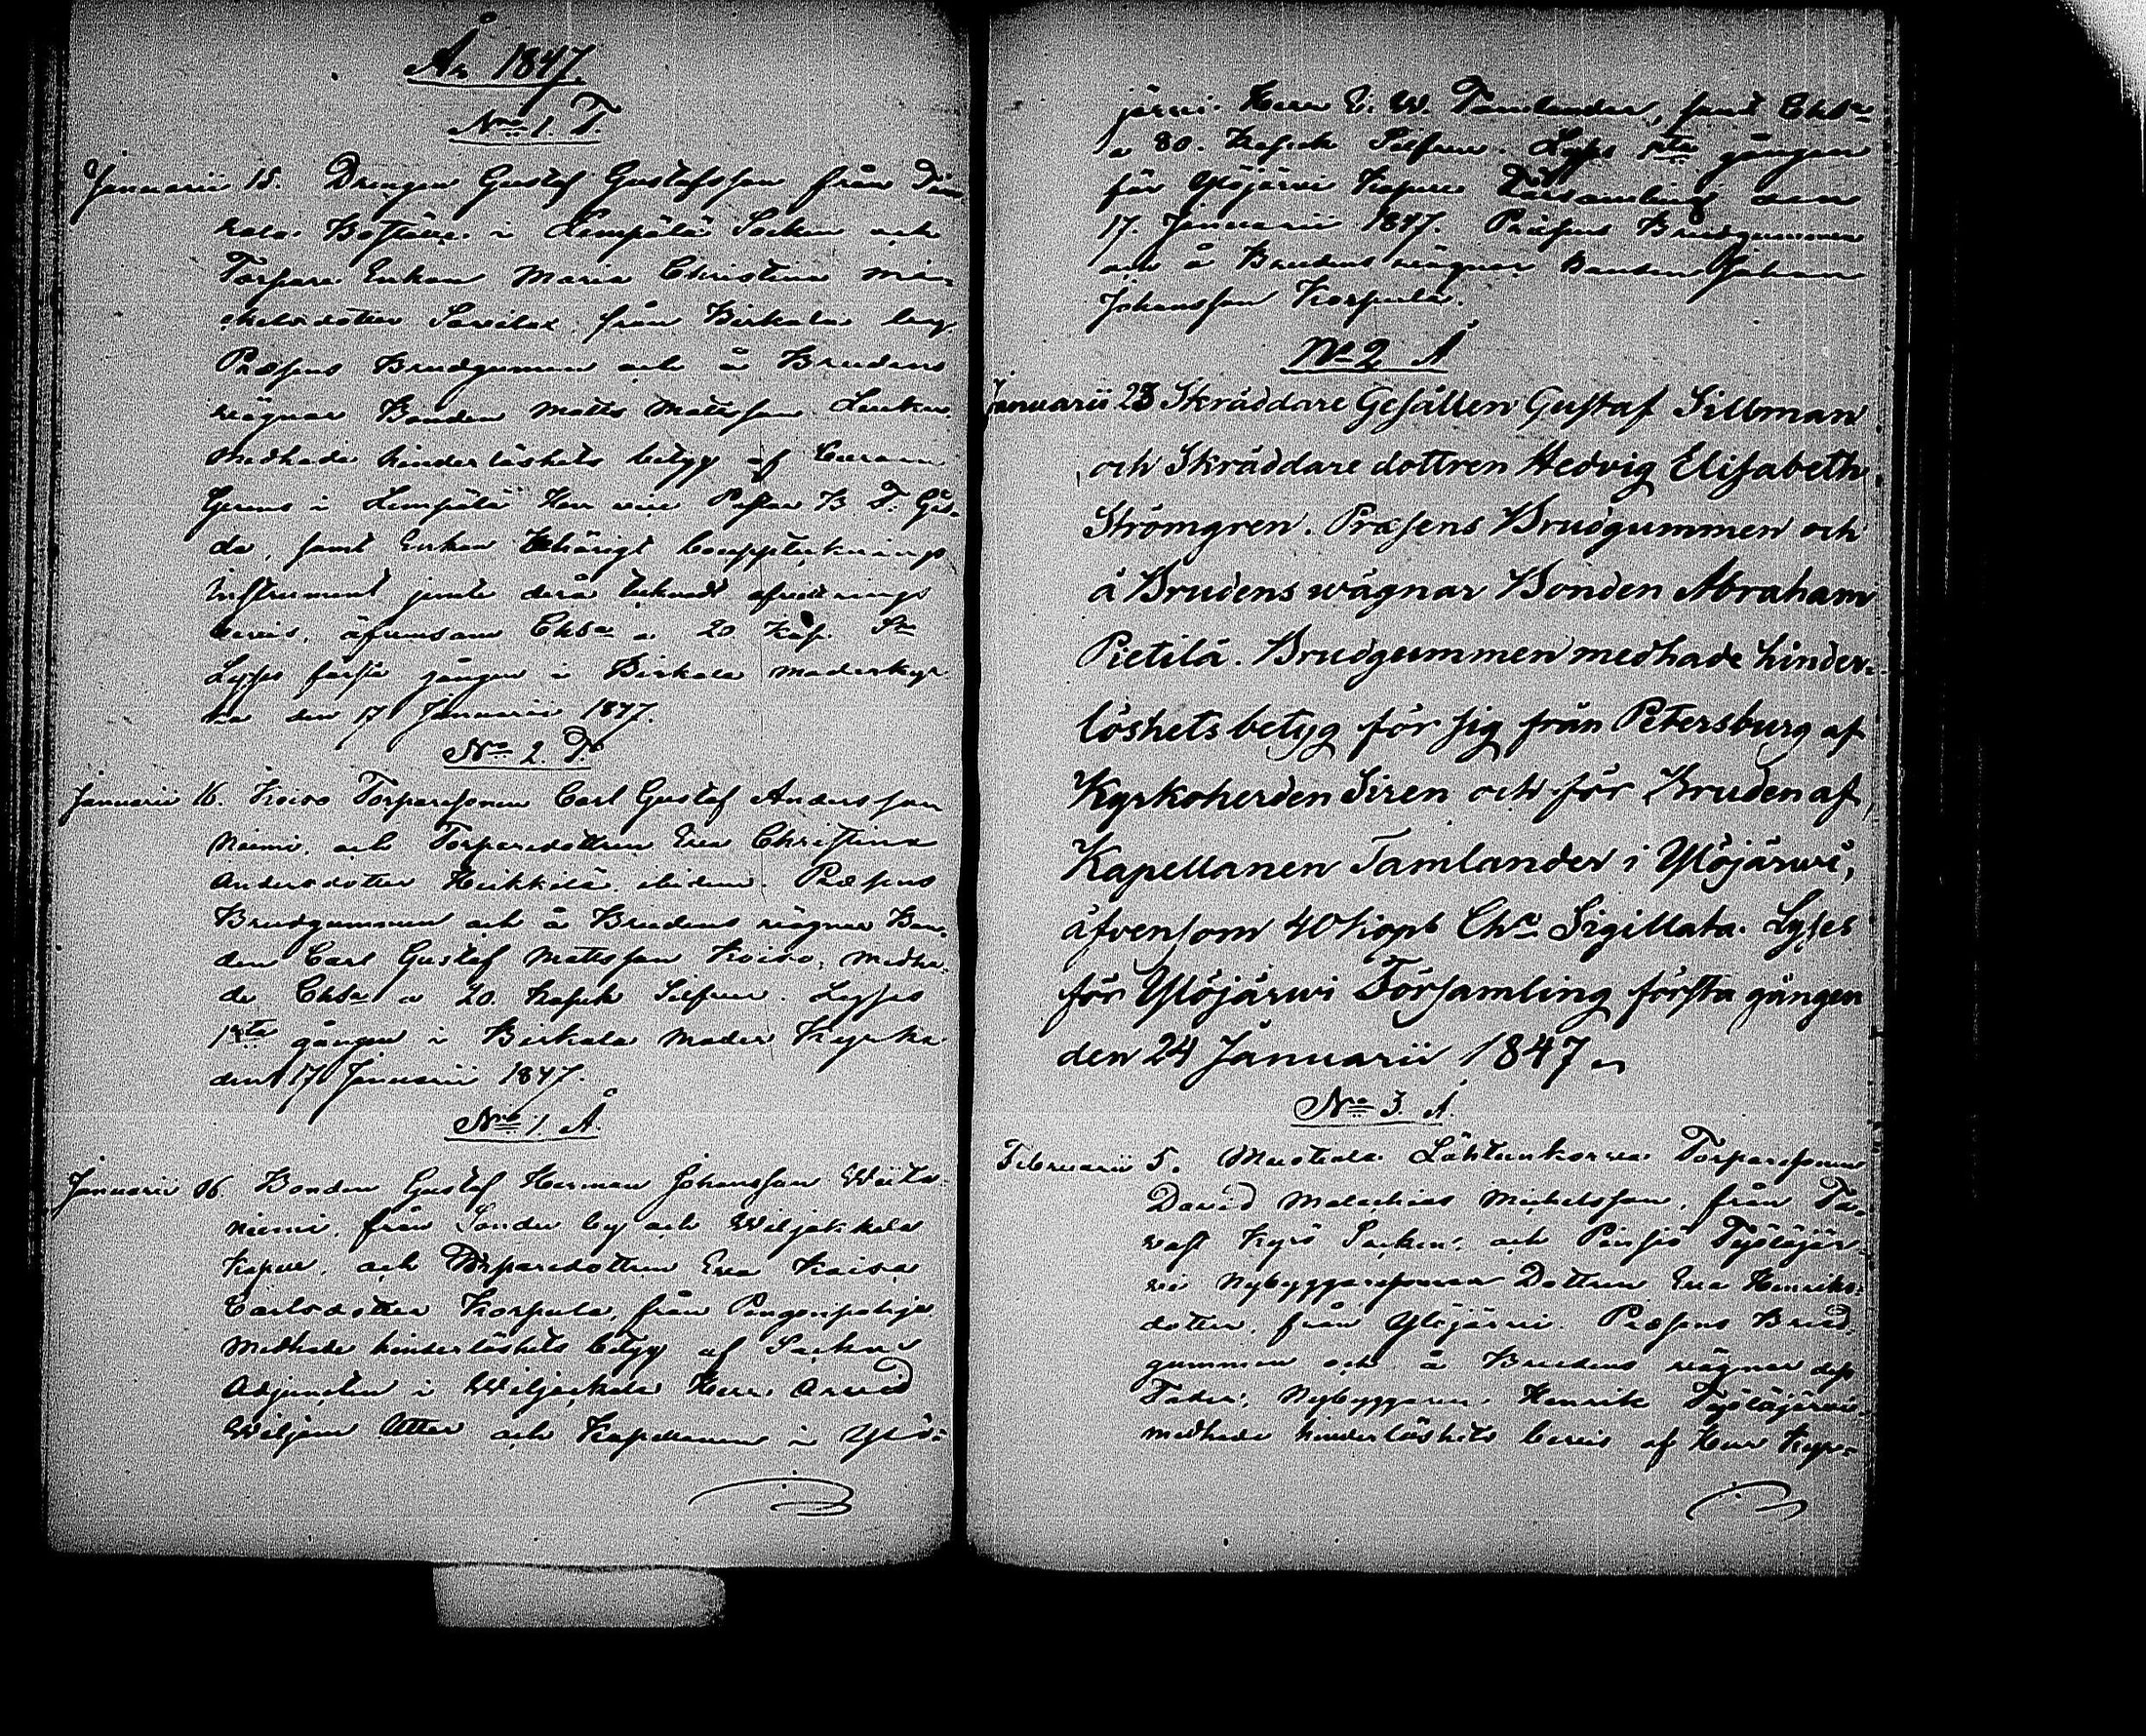 År 1847.
No 1. T.
Januarii 15. Drengen Gustaf Gustafsson från
Boställe i Lempälä Socken och
Torpare Enkan Maria Christina Mi-
chelsdotter från Birkala by,
Præsens Brudgummen och å Brudens
wägnar Bonden Matts Matsson
medhade hinderlöshets betyg af
i Lempälä Herr vice Pastor
samt Enkan behörigt bouppteknings
Instrument jemte derå teknadt afvittrings
bevis, äfvensom Chta a 20. Kop.
Lyses första gången i Birkala moderkyr-
ka den 17 Januarii 1847.
No 2. T.
Januarii 16. Koivo Torparesonen Carl Gustaf Andersson
Niemi, och Torparedottren Eva Christina
Andersdotter Heikkilä ibidem. Præsens
Brudgummen och å Brudens wägnar Bon-
den Carl Gustaf Matsson Koivo, medha-
de Chta a 20. Kopek Silfver. Lyses
1sta gången i Birkala Moder Kyrka
den 17 Januarii 1847.
No 1. Å.
Januarii 16. Bonden Gustaf Herman Johansson Wiita-
niemi, från by och Wiljakkala
Kapell, och Torparedottren Eva Kaisa
Carlsdotter Korpula, från Pengonpohja.
Medhade hinderlöshets betyg af Sockne
Adjuncten i Wiljackala Herr Arvid
Wiljam och Kapellanen i Ylö-
järvi Herr Tamlander, samt Chta
a 80. Kopek Silfver. Lyses 1sta gången
för Ylöjärvi Kapell Församling den
17. Januarii 1847. Præsens Brudgummen
och å Brudens wägnar Bonden Johan
Johansson Korpula.
No 2 Å
Januarii 23 Skräddare Gesällen Gustaf Sillman
och Skräddare dottren Hedvig Elisabeth
Strömgren. Præsens Brudgummen och
å Brudens wägnar Bonden Abraham
Pietilä. Brudgummen medhade hinder-
löshetsbetyg för sig från Petersburg af
Kyrkoherden Siren och för Bruden af
Kapellanen Tamlander i Ylöjärwi,
äfvensom 40 kopk Cha Sigillata. Lyses
för Ylöjärwi Församling första gången
den 24 Januarii 1847.
No 3. Å.
Februarii 5. Lähteenkorva Torparesonen
David Malachias Michelsson, från Ta-
vast Kyrö Socken, och Pinsiö Työläjär-
vi Nybyggaresonens Dottren Eva Henriks-
dotter, från Ylöjärvi. Præsens Brud-
gummen och å Brudens wägnar dess
Fader, Nybyggaren Henrik Työläjärvi
medhade hinderlöshets bevis af Herr Kyr-